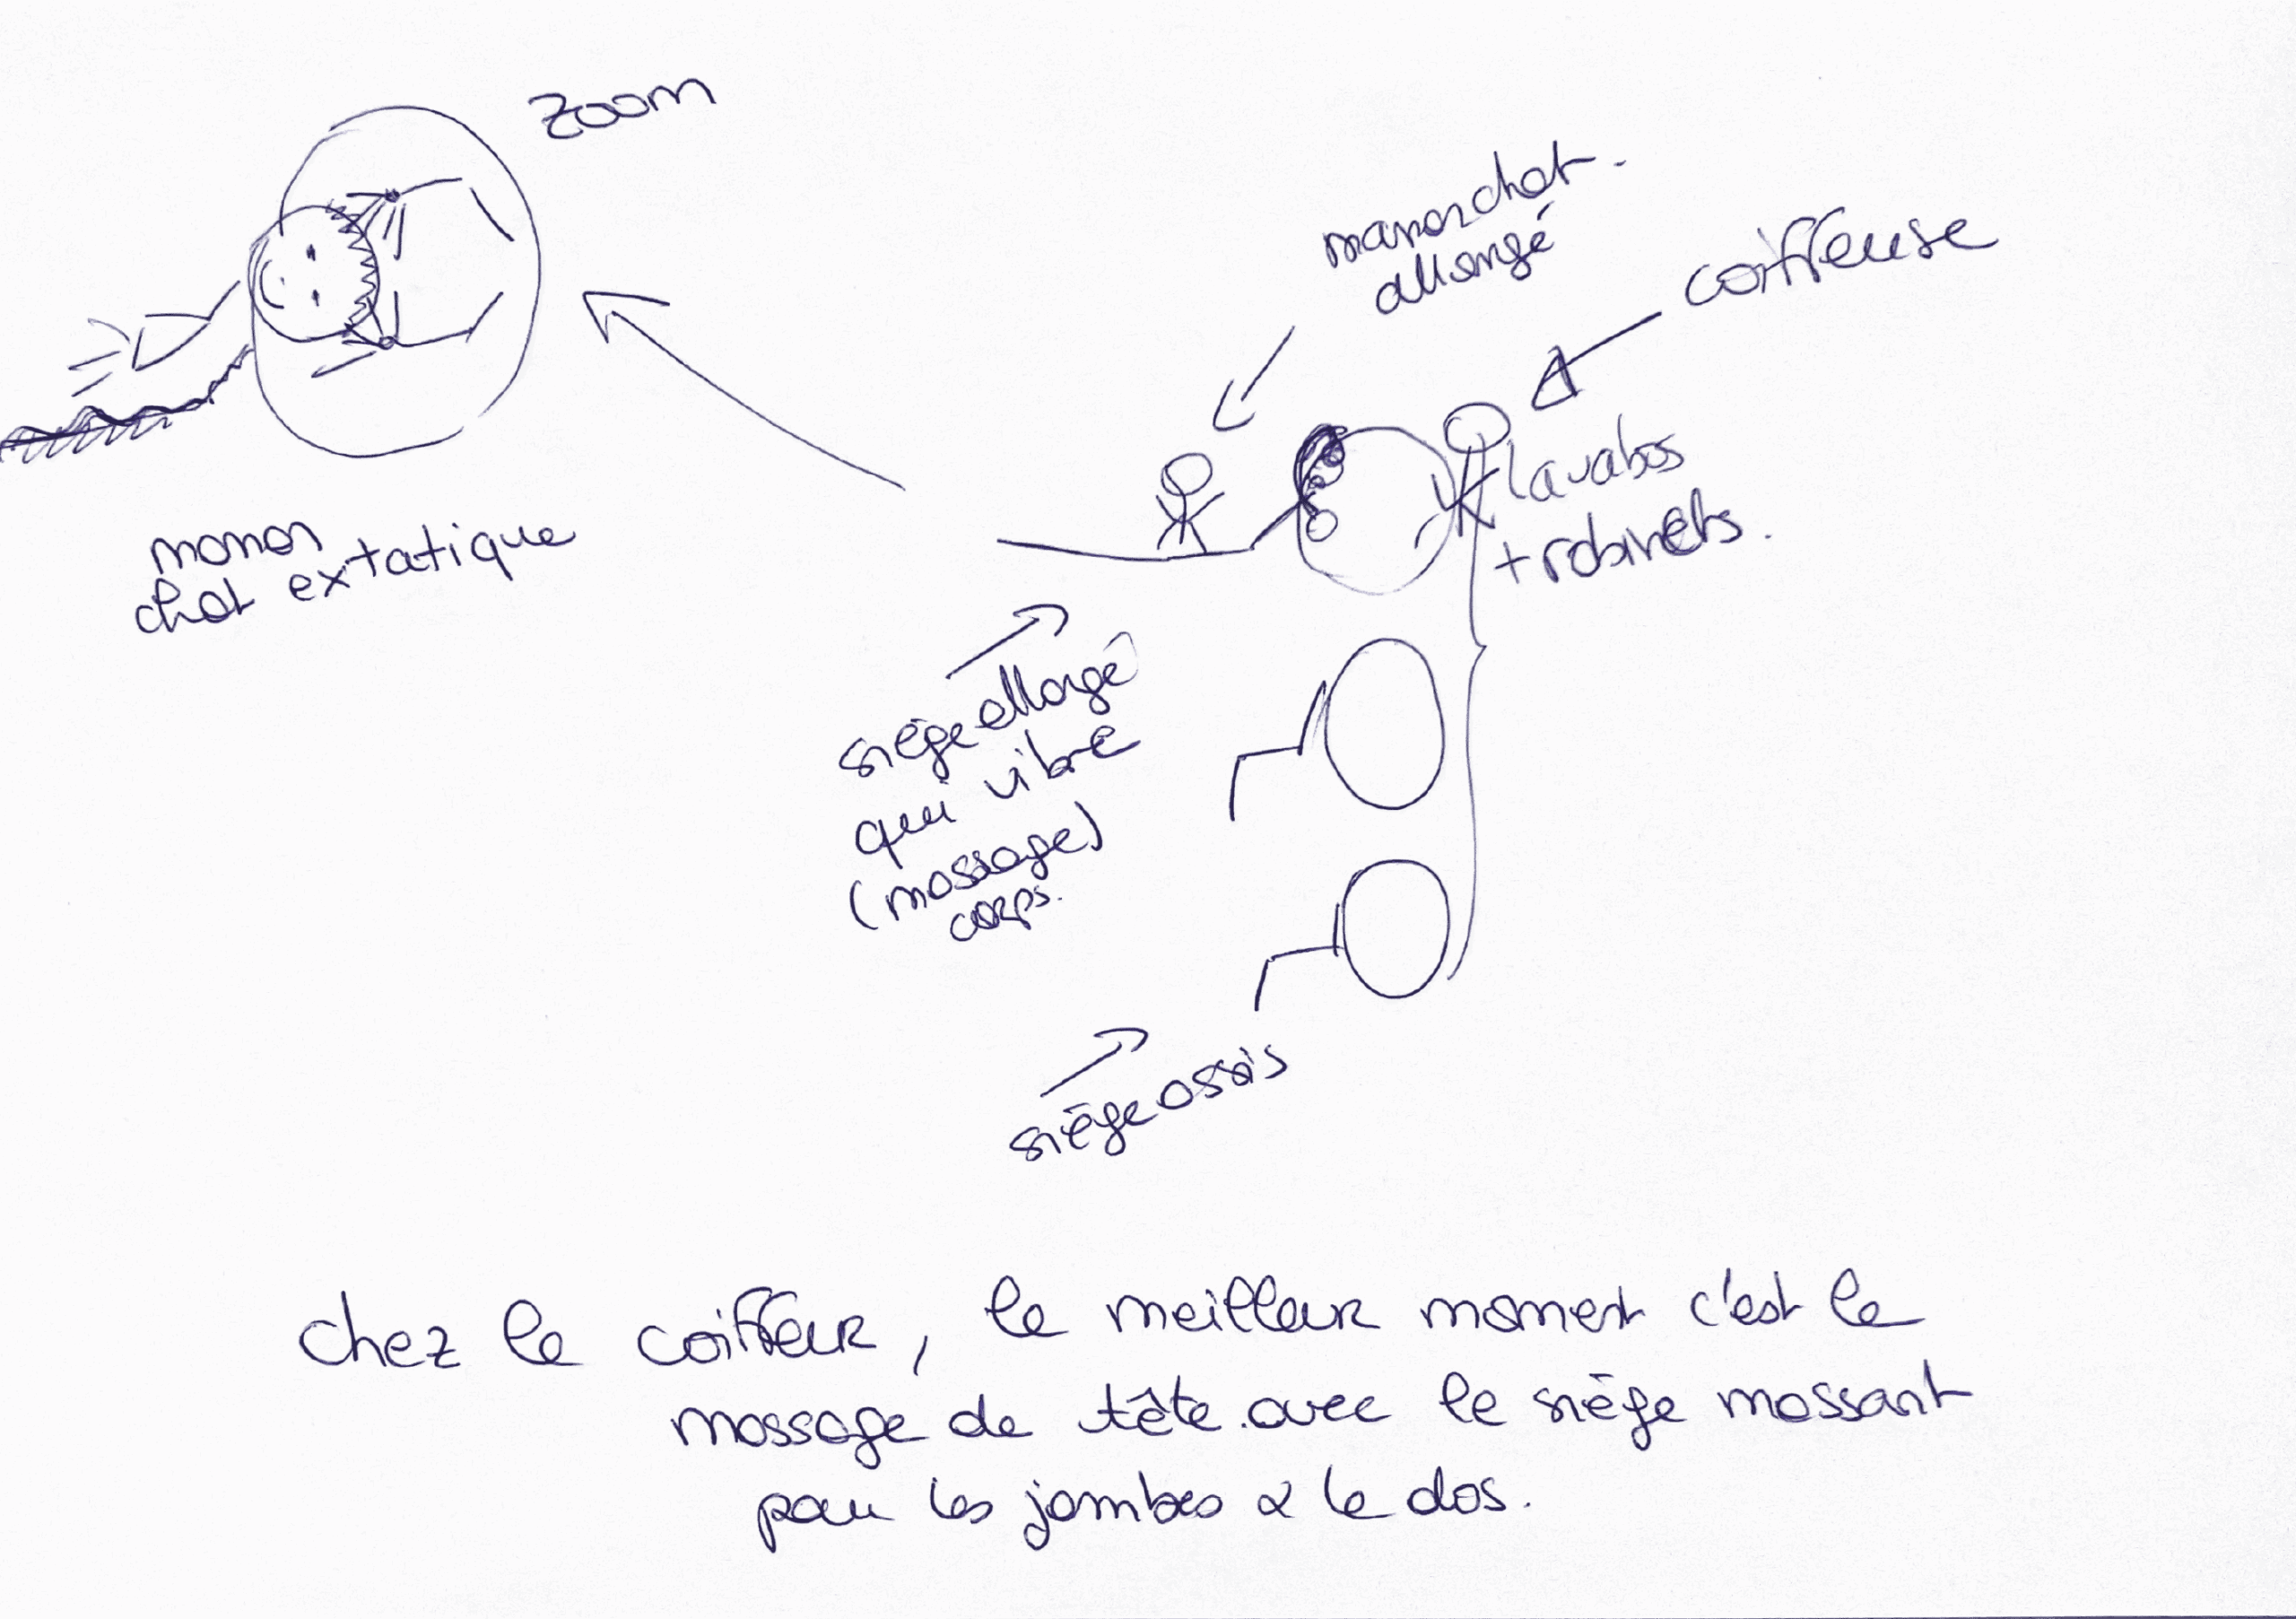 zoom
manon chat
allongé
coiffeuse
lavabos
+ robinets.
manon
chat extatique
siège allongé
qui vibre
(massage)
corps.
siège assis
chez le coiffeur, le meilleur moment c'est le
massage de tête avec le siège massant
pour les jambes & le dos.